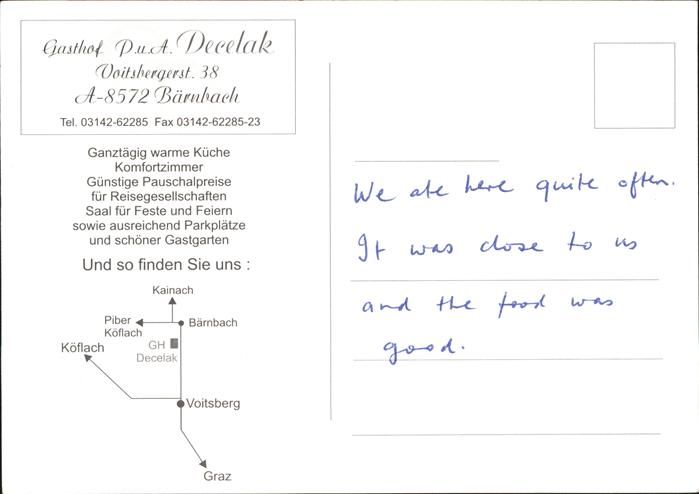 Gasthof P.u.A. Decelak
Voitsbergerst. 38
A-8572 Bärnbach
Tel. 03142-62285 Fax 03142-62285-23
Ganztägig warme Küche
Komfortzimmer
Günstige Pauschalpreise
für Reisegesellschaften
Saal für Feste und Feiern
sowie ausreichend Parkplätze
und schöner Gastgarten
Und so finden Sie uns :
Kainach
Piber
Köflach
Bärnbach
GH
Decelak
Köflach
Voitsberg
Graz
We ate here quite often.
It was close to us
and the food was
good.